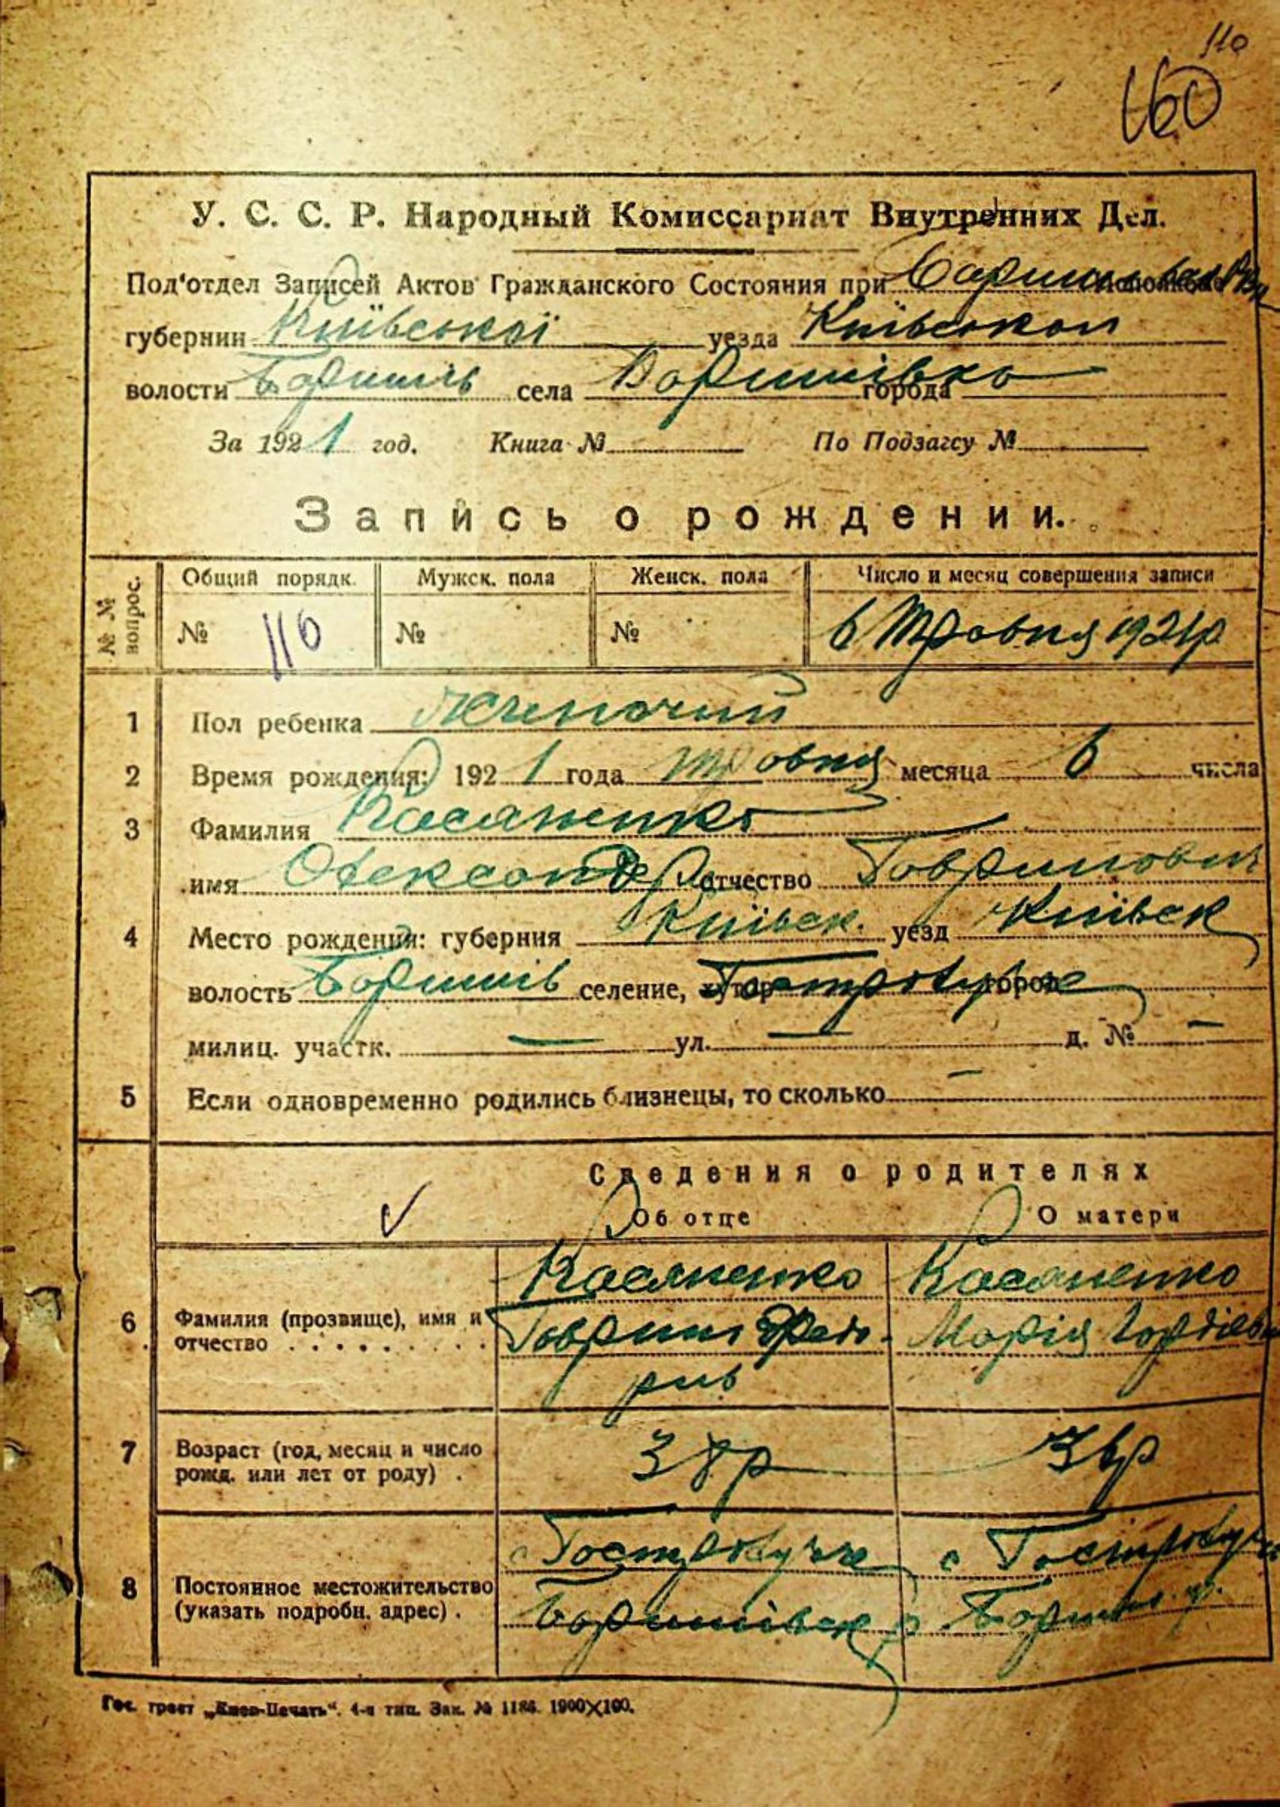 110
160
У. С. С. Р. Народный Комиссариат Внутренних Дел.
Под'отдел Записей Актов Гражданского Состояния при
губернии Київської уезда Київської
волости Баришів села города
За 1921 год. Книга № По Подзагсу №
Запись о рождении.
№ № вопрос. Общий порядк. Мужск. пола Женск. пола Число и месяц совершения записи
№ 116 № № 6 Травня 1921 р
1 Пол ребенка
2 Время рождения: 1921 года травня месяца 6 числа
3 Фамилия Касяненко
имя Олександер отчество Гаврилович
4 Место рождений: губерния Київск. уезд Київск
волость Баришів селение, хутор город
милиц. участк. — ул. — д. № —
5 Если одновременно родились близнецы, то сколько —
Сведения о родителях
Об отце О матери
Касяненко Касяненко
6 Фамилия (прозвище), имя и отчество Гаврил Марія
7 Возраст (год, месяц и число рожд. или лет от роду) .
8 Постоянное местожительство (указать подробн. адрес) .
Гос. трест „Киев-Печать“. 4-я тип. Зак. № 1186. 1900×100.